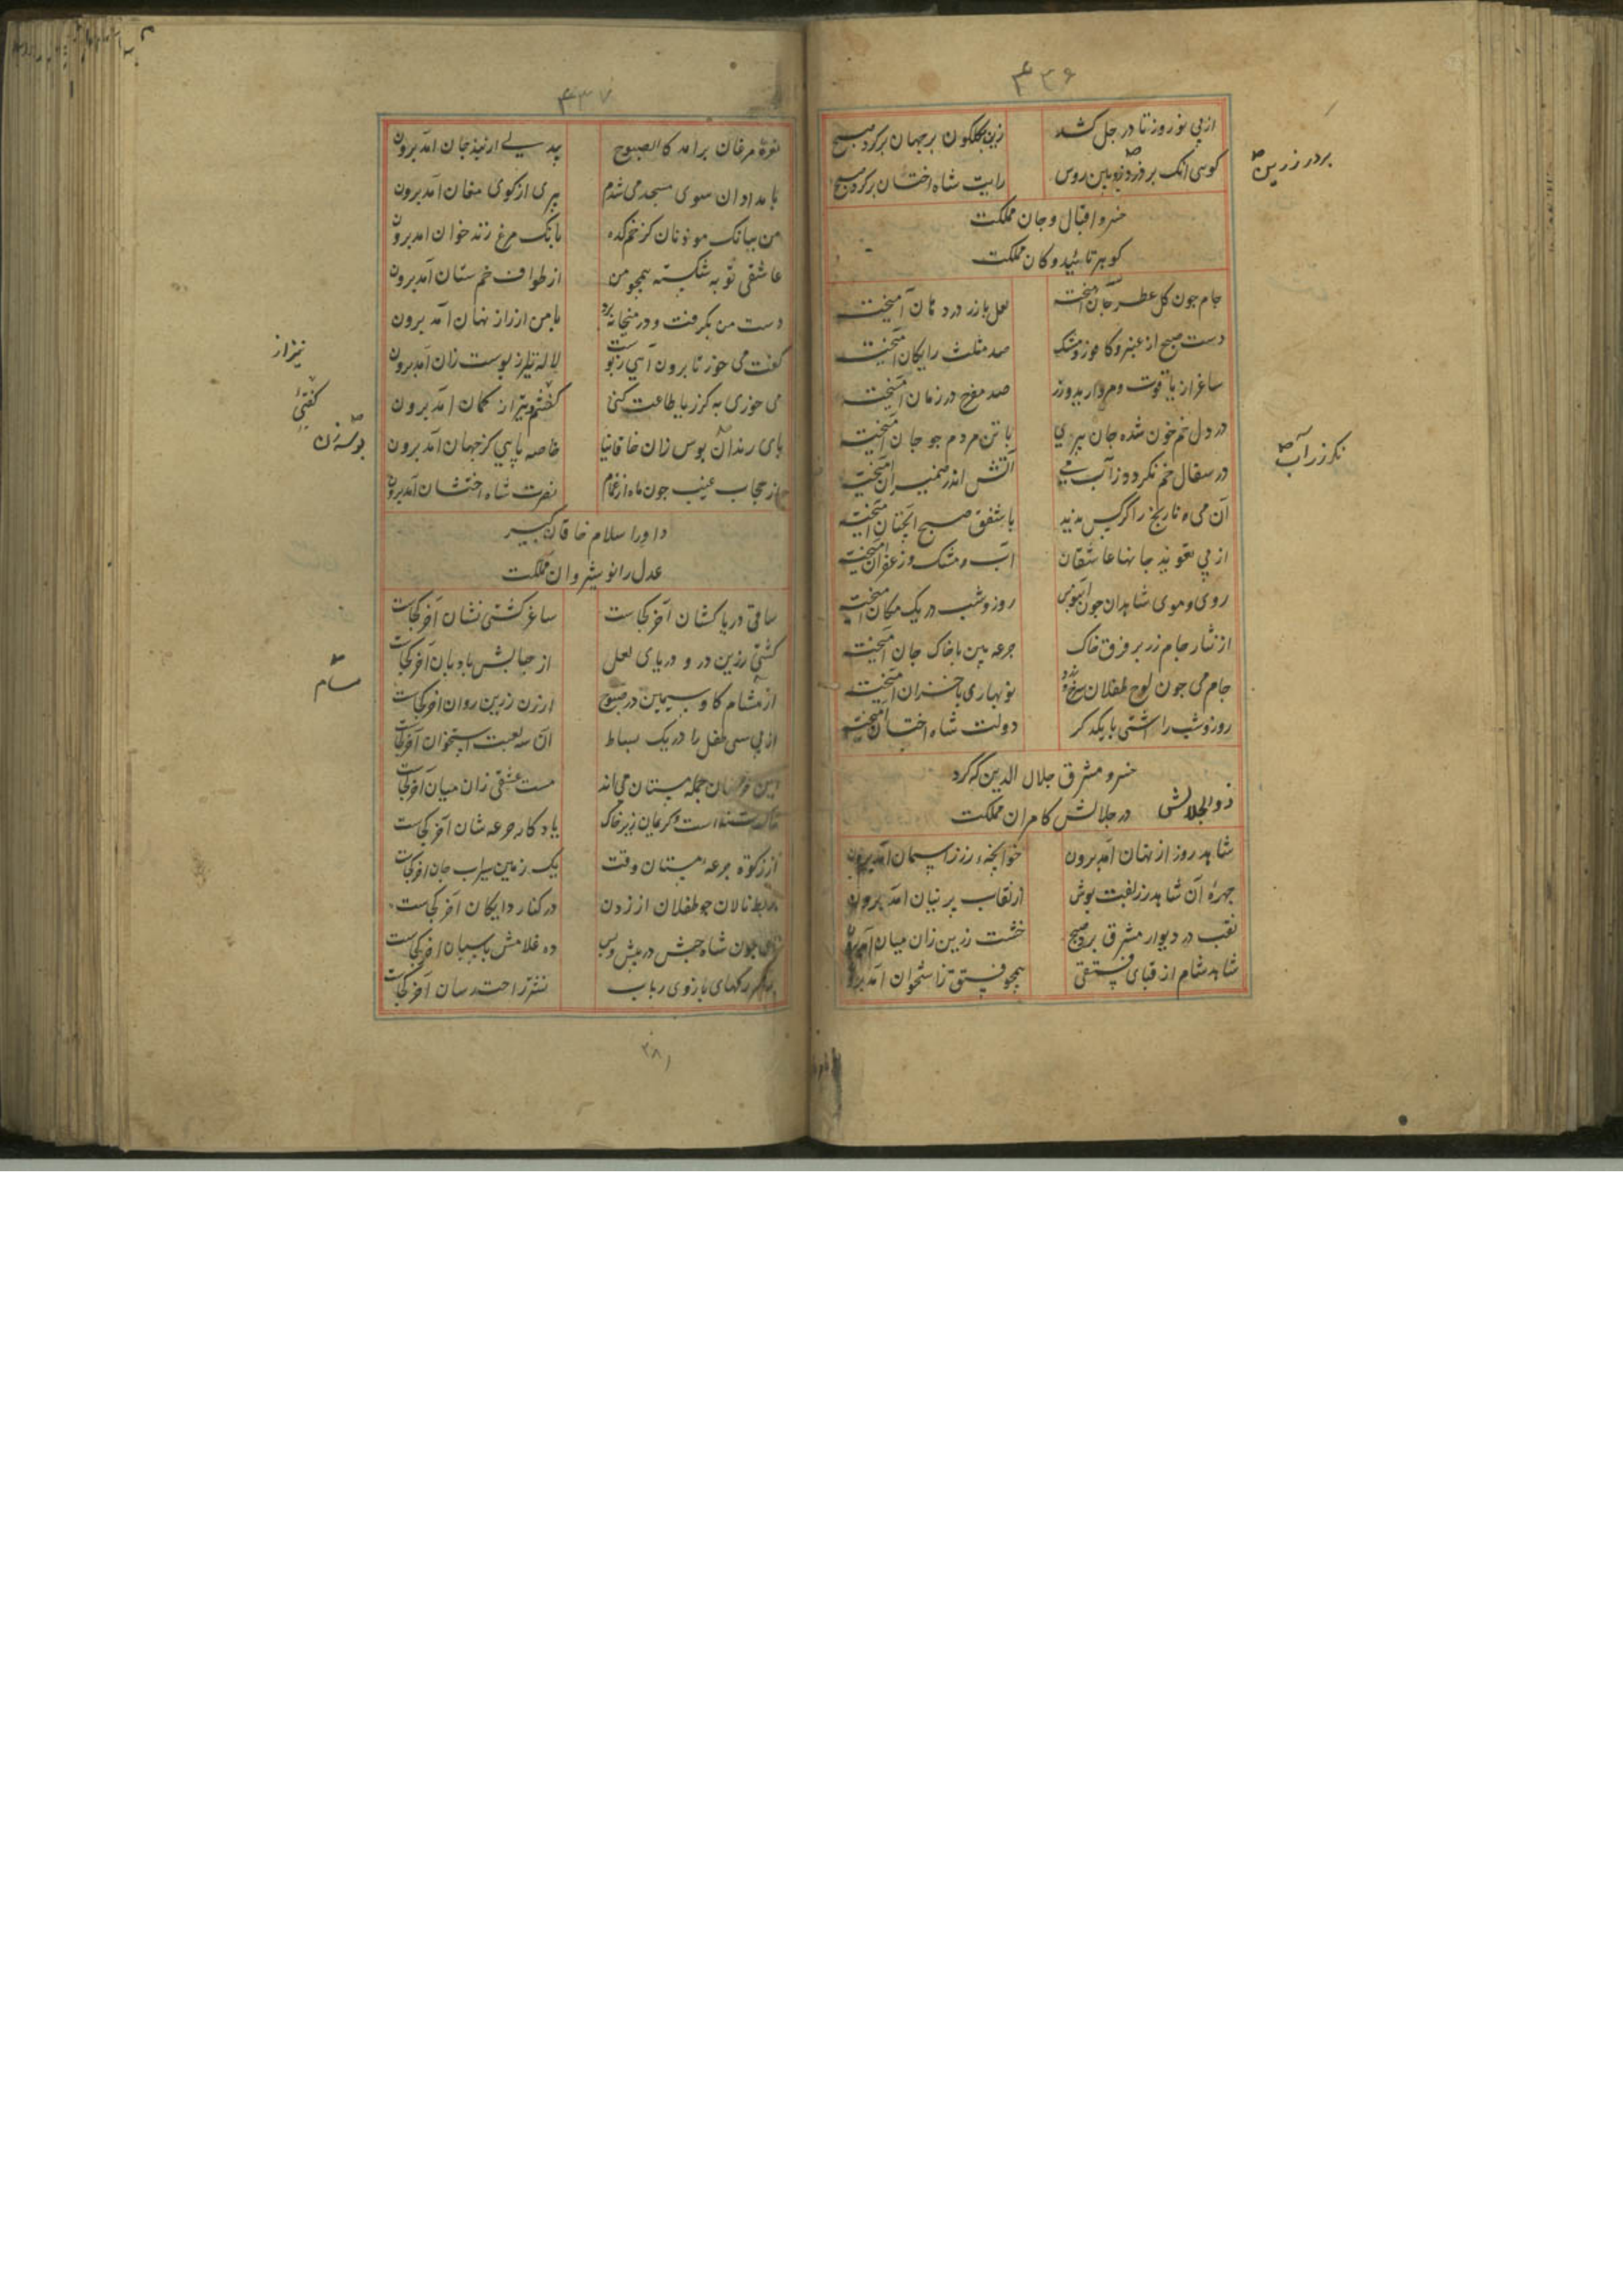 ۴۳۶
از پی نوروز تا در جل کشد زین بگلگون بر جهان برکرد صبح
کوسی آنک بر دین روس رایت شاه اخستان برکرد صبح
بردر زرین
خسرو اقبال و جان مملکت
کوهر تائید و کان مملکت
جام جون کل عطر جان آمیخته لعل بازر در دمان آمیخته
دست صبح از عنبر و کافور و مشک صد مثلث رایکان آمیخته
ساغر از یاقوت و مروارید و زر صد مفرح در زمان آمیخته
در دل خم خون شده جان پری با تن مردم جو جان آمیخته
در سفال خم نکر دو زآب می آتش اندر ضمیران آمیخته
نکرزرآب
آن می و نارنج را کرکس ندید با شفق صبح آنچنان آمیخته
از پی تعویذ جانها عاشقان آب و مشک و زعفران آمیخته
روی و موی شاهدان جون آبنوس روز و شب در یک مکان آمیخته
از نثار جام زر بر فرق خاک جرعه بین با خاک جان آمیخته
جام می جون لوح طفلان سرخ و زرد نوبهاری با خزان آمیخته
روز و شب را آشتی با یکدکر دولت شاه اخستان آمیخته
خسرو مشرق جلال الدین که کرد
ذوالجلالش در جلالش کامران مملکت
شاهد روز از نهان آمد برون خوانچه زر ز آسمان آمد برون
جهرهٔ آن شاهد زربفت پوش از نقاب پرنیان آمد برون
نقب در دیوار مشرق برد صبح خشت زرین زان میان آمد برون
شاهد شام از قبای فستقی همچو فستق ز استخوان آمد برون
۴۳۷
نعرهٔ مرغان برآمد کالصبوح بیدلی از بند جان آمد برون
بامدادان سوی مسجد می شدم پیری از کوی مغان آمد برون
من ببانک موذنان کز خم کده بانک مرغ زند خوان آمد برون
عاشقی توبه شکسته همچو من از طواف خم ستان آمد برون
دست من بکرفت و در میخانه برد بامن از راز نهان آمد برون
گفت می خور تا برون آیی ز پوست لاله نیز از پوست زان آمد برون
نیز از
می خوری به کز ریا طاعت کنی کفتم و تیر از کمان آمد برون
کفتی
پای رندان بوس زان خاقانیا خاصه پایی کز جهان آمد برون
بوسه زن
از حجاب غیب جون ماه از غمام نصرت شاه اخستان آمد برون
داور اسلام خاقان کبیر
عدل را نوشیروان مملکت
ساقی دریا کشان آخر کجاست ساغر کشتی نشان آخر کجاست
کشتی زرین در و دریای لعل از حبابش بادبان آخر کجاست
از مشام کاو سیمین در صبوح ارزن زرین روان آخر کجاست
مسام
از پی سی طفل را در یک بساط آن سه لعبت ز استخوان آخر کجاست
جمله مستان می اند مست عشقی زان میان آخر کجاست
زیر خاک یادکار جرعه شان آخر کجاست
از زکوة جرعه مستان وقت یک زمین سیراب جان آخر کجاست
بربط نالان جو طفلان از زدن در کنار دایکان آخر کجاست
نای جون شاه حبش در پیش و پس ده غلامش پاسبان آخر کجاست
رکهای بازوی رباب نشتر راحت رسان آخر کجاست
۳۸۱